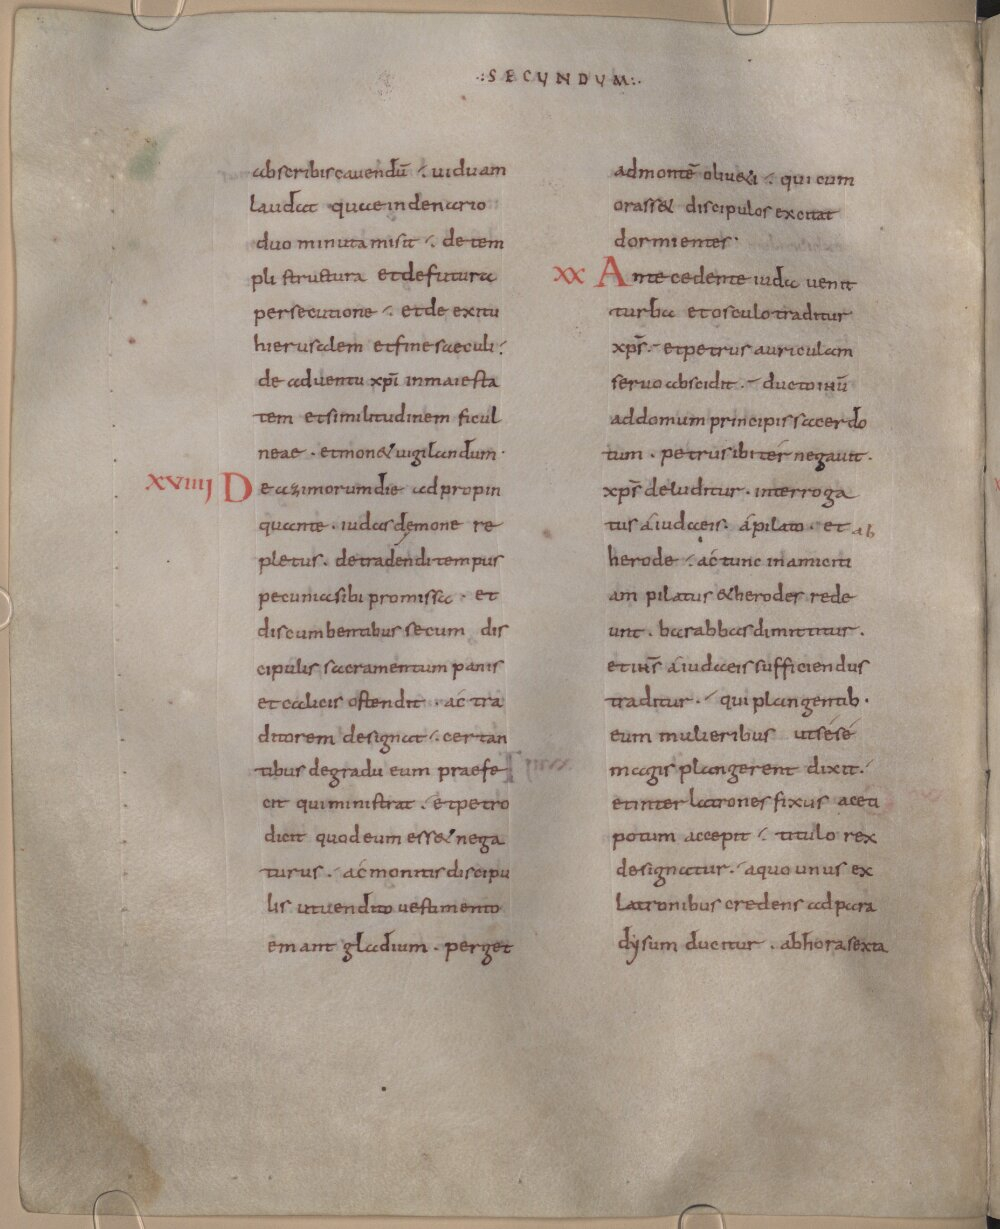 .:SECUNDUM:.
abscribis cavendū. viduam
laudat quae in denario
duo minuta misit. de tem
pli structura et de futura
persecutione. et de exitu
hierusalem et fine saeculi.
de adventu xp̄i in maiesta
tem et similitudinem ficul
neae. et mon& vigilandum.
XVIIII De azimorum die adpropin
quante. iudas demone re
pletus. de tradendi tempus
pecunia sibi promissa. et
discumbentibus secum dis
cipulis sacramentum panis
et calicis ostendit. ac tra
ditorem designat. certan
tibus de gradu eum praefe
cit qui ministrat. et petro
dicit quod eum ess& nega
turus. ac monitis discipu
lis ut vendito vestimento
emant gladium. perget
ad montē oliv&i. qui cum
orass& discipulos excitat
dormientes.
XX Antecedente iuda venit
turba et osculo traditur
xp̄s. et petrus auriculam
servo abscidit. ducto ihū
ad domum principis sacerdo
tum. petrus ibi ter negavit.
xp̄s deluditur. interroga
tus a iudaeis. a pilato. et ab
herode. ac tunc in amiciti
am pilatus & herodes rede
unt. barabbas dimittitur.
et ihs̄ a iudaeis sufficiendus
traditur. qui plangentib.
eum mulieribus ut sese
magis plangerent dixit.
et inter latrones fixus aceti
potum accepit. titulo rex
designatur. a quo unus ex
latronibus credens ad para
dysum ducitur. ab hora sexta